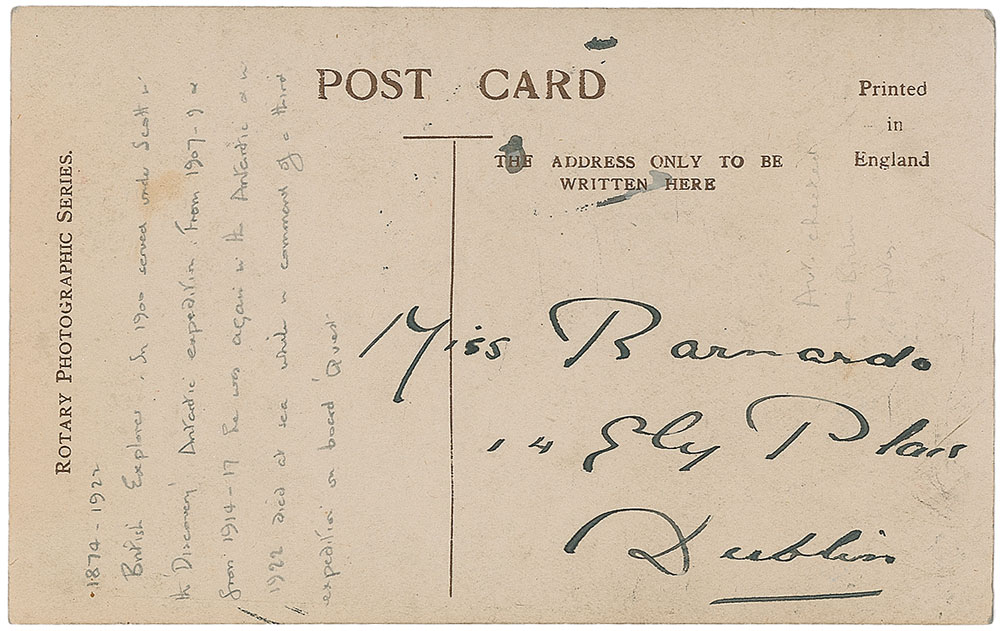 POST CARD
Printed
in
England
THE ADDRESS ONLY TO BE
WRITTEN HERE
ROTARY PHOTOGRAPHIC SERIES.
1874-1922
British Explorer. In 1900 served under Scott in
the 'Discovery' Antartic expedition. From 1907-9 &
from 1914-17 he was again in the Antartic & in
1922 died at sea while in command of a third
expedition on board 'Quest'
Miss Barnardo
14 Ely Place
Dublin